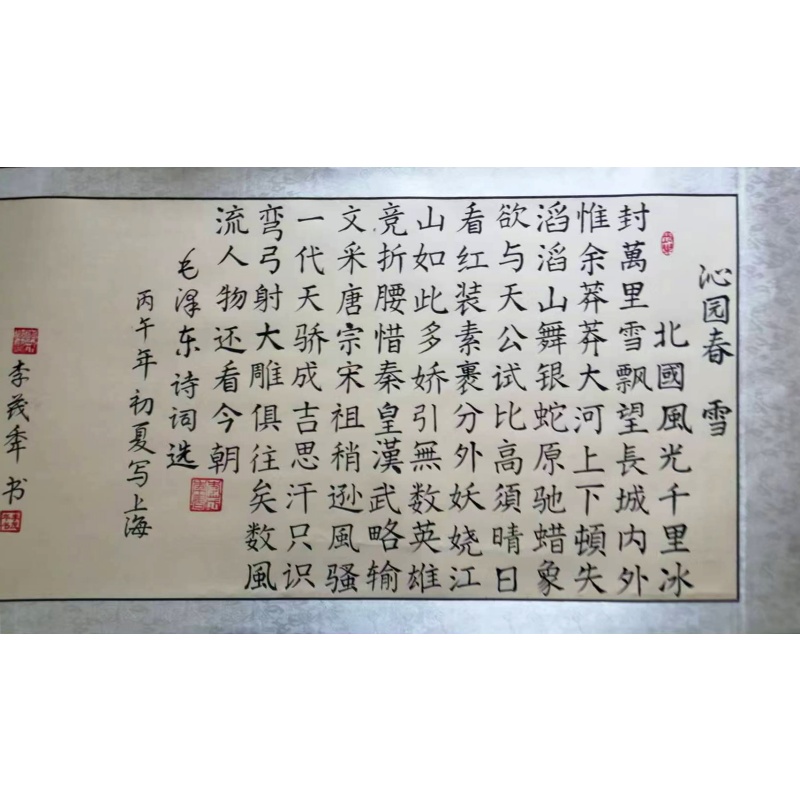 沁园春 雪
北國風光千里冰
封萬里雪飘望長城内外
惟余莽莽大河上下頓失
滔滔山舞银蛇原驰蜡象
欲与天公试比高須晴日
看红装素裹分外妖娆江
山如此多娇引無数英雄
竞折腰惜秦皇漢武略输
文采唐宗宋祖稍逊風骚
一代天骄成吉思汗只识
弯弓射大雕俱往矣数風
流人物还看今朝
毛泽东诗词选
丙午年初夏写上海
李茂年书